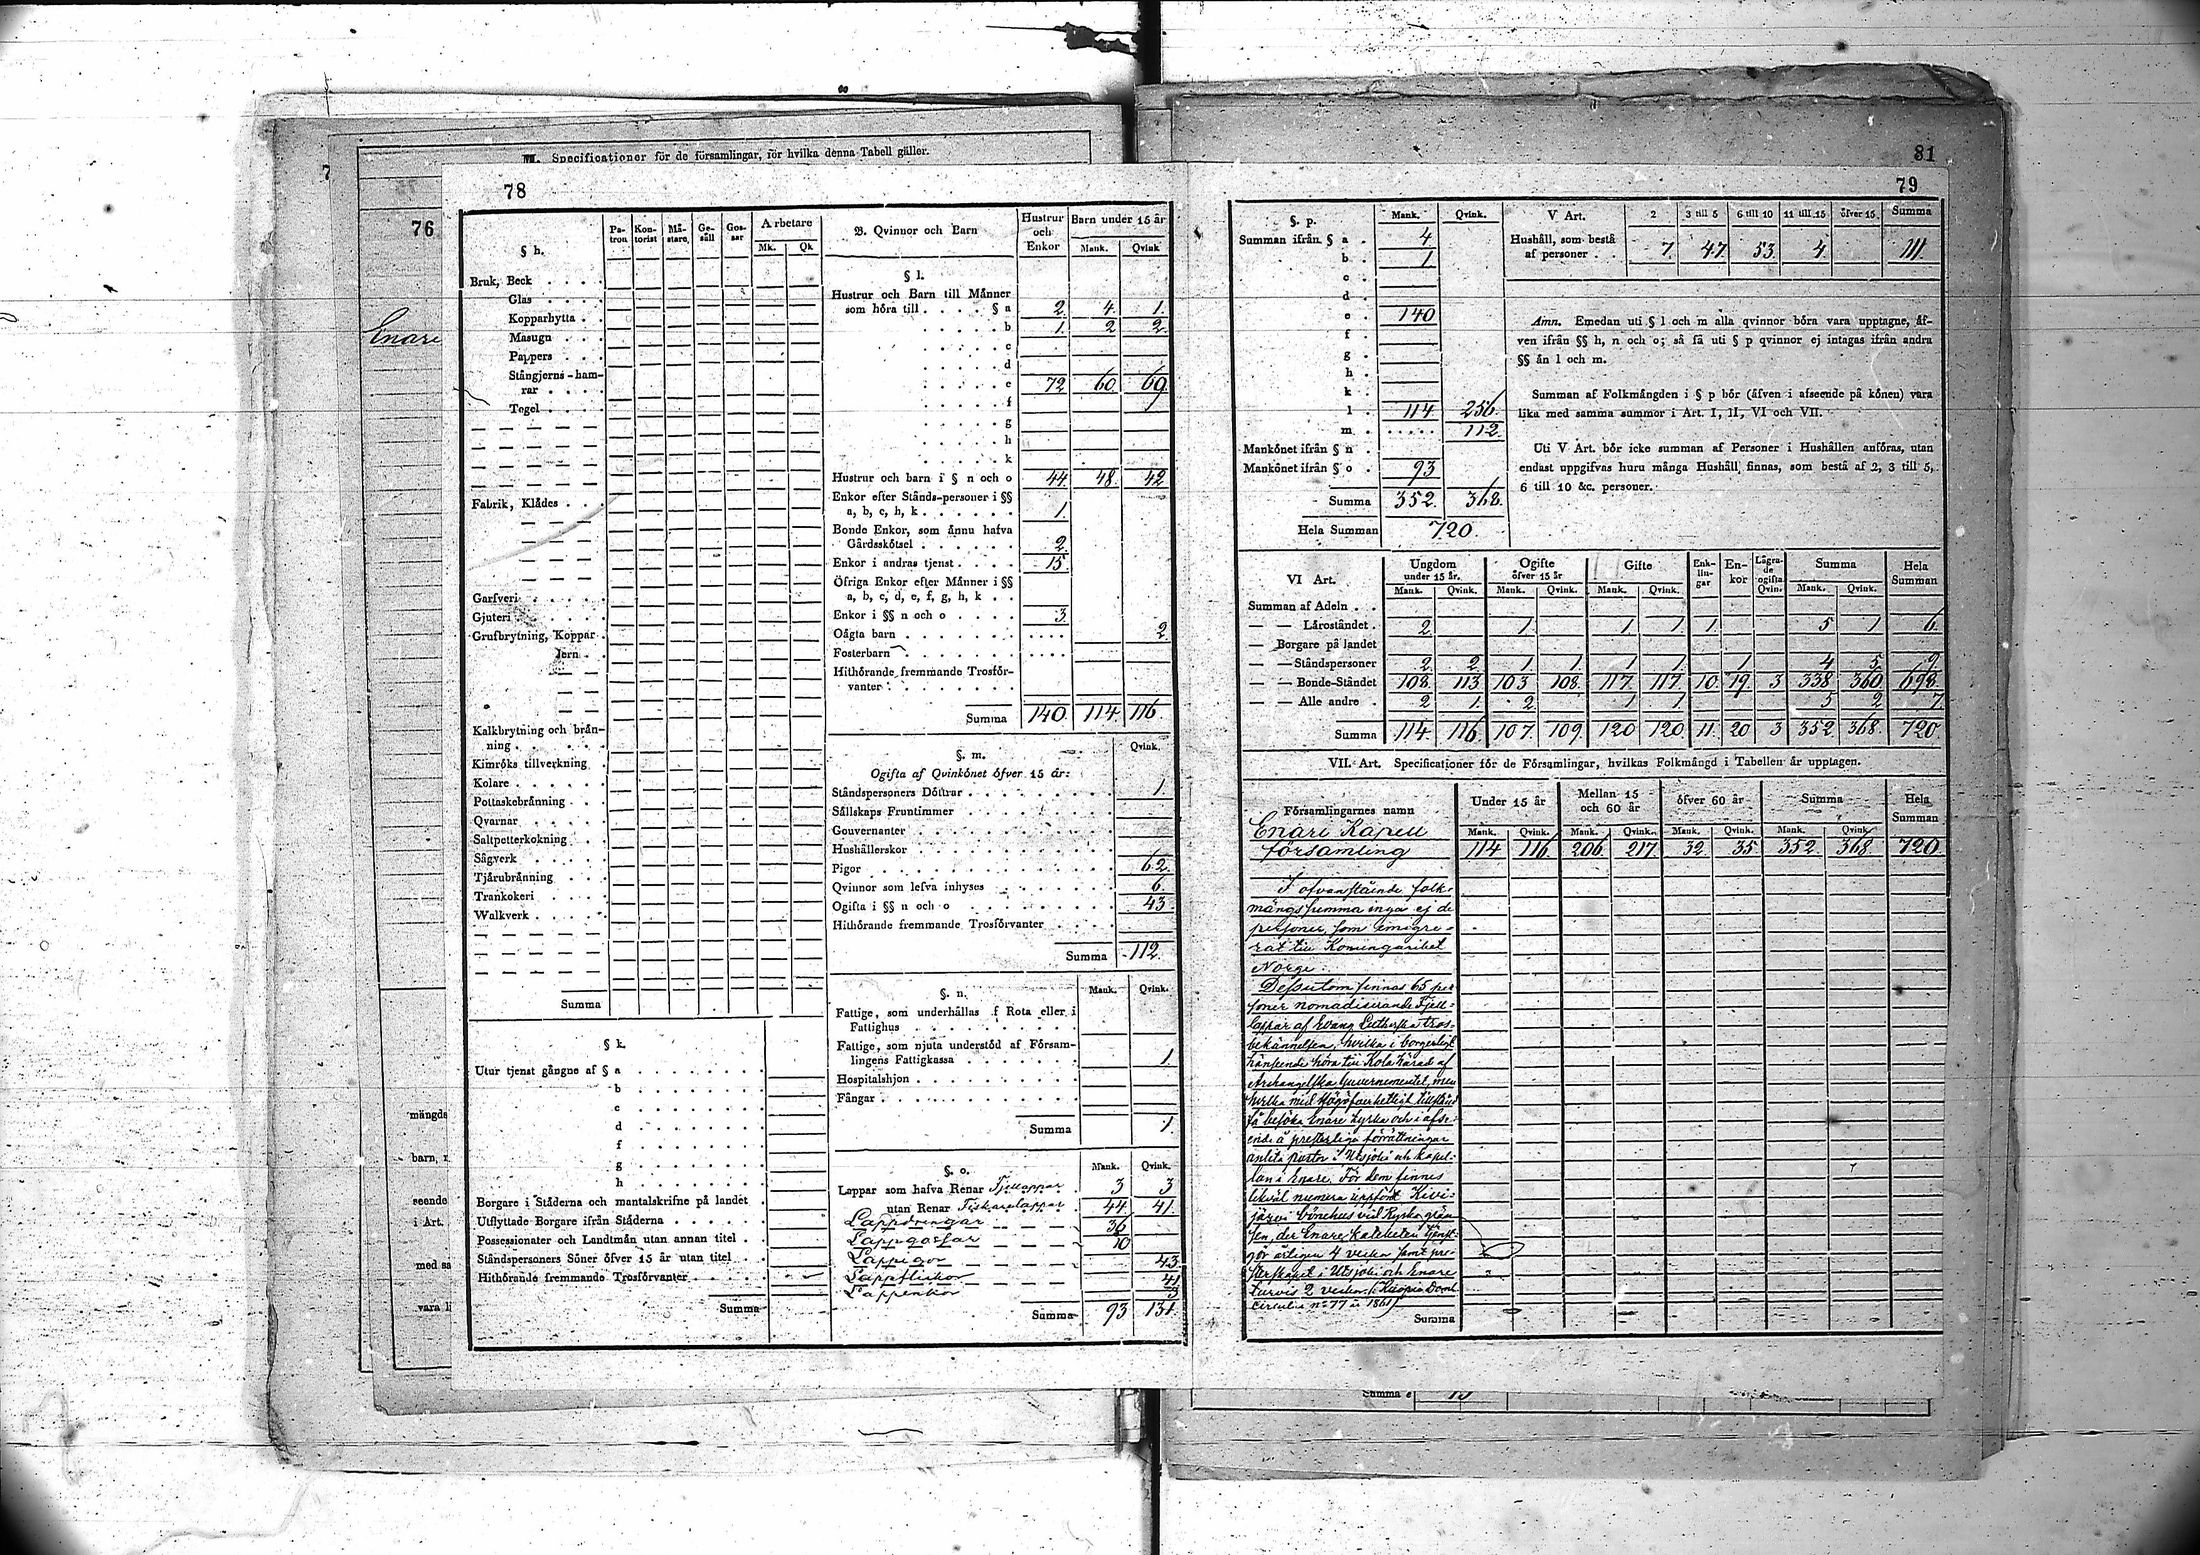 VII. Specificationer för de församlingar, för hvilka denna Tabell gäller.
76
Enare
mängds
barn,
seende
i Art.
med sa
vara l
78
§ h.
Pa-tron Kon-torist Mä-stare Ge-säll Gos-sar Arbetare
Mk. Qk
Bruk, Beck
Glas
Kopparhytta
Masugn
Pappers
Stångjerns-ham-
rar
Tegel
Fabrik, Klädes
Garfveri
Gjuteri
Grufbrytning, Koppar
Jern
Kalkbrytning och brän-
ning
Kimröks tillverkning
Kolare
Pottaskebränning
Qvarnar
Saltpetterkokning
Sågverk
Tjärubränning
Trankokeri
Walkverk
Summa
§ k.
Utur tjenst gångne af § a
b
c
d
f
g
h
Borgare i Städerna och mantalskrifne på landet
Utflyttade Borgare ifrån Städerna
Possessionater och Landtmän utan annan titel
Ståndspersoners Söner öfver 15 år utan titel
Hithörande fremmande Trosförvanter
Summa
B. Qvinnor och Barn Hustrur och Enkor Barn under 15 år
Mank. Qvink.
§ l.
Hustrur och Barn till Männer
som höra till § a 2. 4. 1.
b 1. 2 2.
c
d
e 72 60 69.
f
g
h
k
Hustrur och barn i § n och o 44 48 42
Enkor efter Stånds-personer i §§
a, b, c, h, k 1.
Bonde Enkor, som ännu hafva
Gårdsskötsel 2.
Enkor i andras tjenst 15.
Öfriga Enkor efter Männer i §§
a, b, c, d, e, f, g, h, k
Enkor i §§ n och o 3.
Oägta barn 2.
Fosterbarn
Hithörande fremmande Trosför-
vanter
Summa 140. 114. 116.
§. m. Qvink.
Ogifta af Qvinkönet öfver 15 år:
Ståndspersoners Döttrar 1.
Sällskaps Fruntimmer
Gouvernanter
Hushållerskor
Pigor 62.
Qvinnor som lefva inhyses 6.
Ogifta i §§ n och o 43.
Hithörande fremmande Trosförvanter
Summa 112.
§. n. Mank. Qvink.
Fattige, som underhållas f Rota eller i
Fattighus
Fattige, som njuta understöd af Försam-
lingens Fattigkassa 1.
Hospitalshjon
Fångar
Summa 1.
§. o. Mank. Qvink.
Lappar som hafva Renar Fjellappar 3 3
utan Renar Fiskarelappar 44. 41.
Lappdrengar 36
Lappgossar 10
Lappigor 43
Lappflickor 41
Lappenkor 3
Summa 93 131.
81
79
§. p. Mank. Qvink.
Summan ifrån § a 4
b 1
c
d
e 140
f
g
h
k
l 114. 256.
m 112.
Mankönet ifrån § n
Mankönet ifrån § o 93
Summa 352. 368.
Hela Summan 720.
V Art. 2 3 till 5 6 till 10 11 till 15 öfver 15. Summa
Hushåll, som bestå
af personer 7. 47. 53. 4. 111.
Anm. Emedan uti § l och m alla qvinnor böra vara upptagne, äf-
ven ifrån §§ h, n och o; så få uti § p qvinnor ej intagas ifrån andra
§§ än l och m.
Summan af Folkmängden i § p bör (äfven i afseende på könen) vara
lika med samma summor i Art. I, II, VI och VII.
Uti V Art. bör icke summan af Personer i Hushållen anföras, utan
endast uppgifvas huru många Hushåll finnas, som bestå af 2, 3 till 5,
6 till 10 &c. personer.
VI Art. Ungdom under 15 år. Ogifte öfver 15 år Gifte Enk-lin-gar En-kor Lägra-de ogifta Qvin. Summa Hela Summan
Mank. Qvink. Mank. Qvink. Mank. Qvink. Mank. Qvink.
Summan af Adeln
— — Läroståndet 2 1. 1 1. 1. 5 1 6.
— Borgare på landet
— — Ståndspersoner 2. 2 1. 1. 1 1. 1. 4 5. 9.
— — Bonde-Ståndet 108. 113. 103 108. 117. 117. 10. 19. 3 338 360. 698.
— — Alle andre 2 1. 2. 1 1. 5 2. 7.
Summa 114. 116. 107. 109. 120 120 11. 20 3 352. 368. 720.
VII. Art. Specificationer för de Församlingar, hvilkas Folkmängd i Tabellen är upptagen.
Församlingarnes namn Under 15 år Mellan 15 och 60 år öfver 60 år Summa Hela Summan
Mank. Qvink. Mank. Qvink. Mank. Qvink. Mank. Qvink.
Enare Kapell
församling 114 116. 206. 217. 32. 35 352. 368. 720.
I ofvanstående folk-
mängssumma ingå ej de
personer, som emigre-
rat till Konungariket
Norge.
Dessutom finnas 65 per
soner nomadiserande Fjell-
lappar af Evang Lutherska tros-
bekännelsen, hvilka i borgerligt
hänseende höra till Kola härad af
Archangelska Guvernementet, men
hvilka med tillstånd
få besöka Enare kyrka och i afse-
ende å presterliga förrättningar
anlita pastor i Utsjoki och kapel-
lan i Enare. För dem finnes
likväl numera uppfördt Kivi-
järvi bönehus vid Ryska grän
sen, der Enare Katecheten tjenst-
gör årligen 4 veckor samt pre-
sterskapet i Utsjoki och Enare
turvis 2 veckor. (Kuopio Doml
circulär nr. 77 år 1861)
Summa
Summa